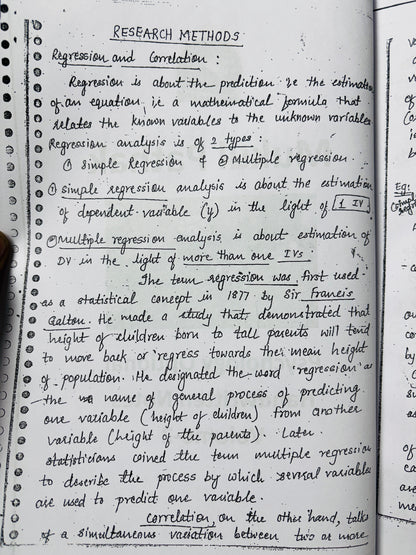 RESEARCH METHODS
Regression and Correlation :
Regression is about the prediction ie the estimation
of an equation, ie a mathematical formula that
relates the known variables to the unknown variables
Regression analysis is of 2 types :
① Simple Regression & ② Multiple regression.
① simple regression analysis is about the estimation
of dependent variable (y) in the light of 1 IV
② Multiple regression analysis is about estimation of
DV in the light of more than one IVs.
The term regression was first used
as a statistical concept in 1877 by Sir Francis
Galton. He made a study that demonstrated that
height of children born to tall parents will tend
to move back or regress towards their mean height
of population. He designated the word 'regression' as
the name of general process of predicting
one variable (height of children) from another
variable (height of the parents). Later
statisticians coined the term multiple regression
to describe the process by which several variables
are used to predict one variable.
Correlation, on the other hand, talks
of a simultaneous variation between two or more
Eg: